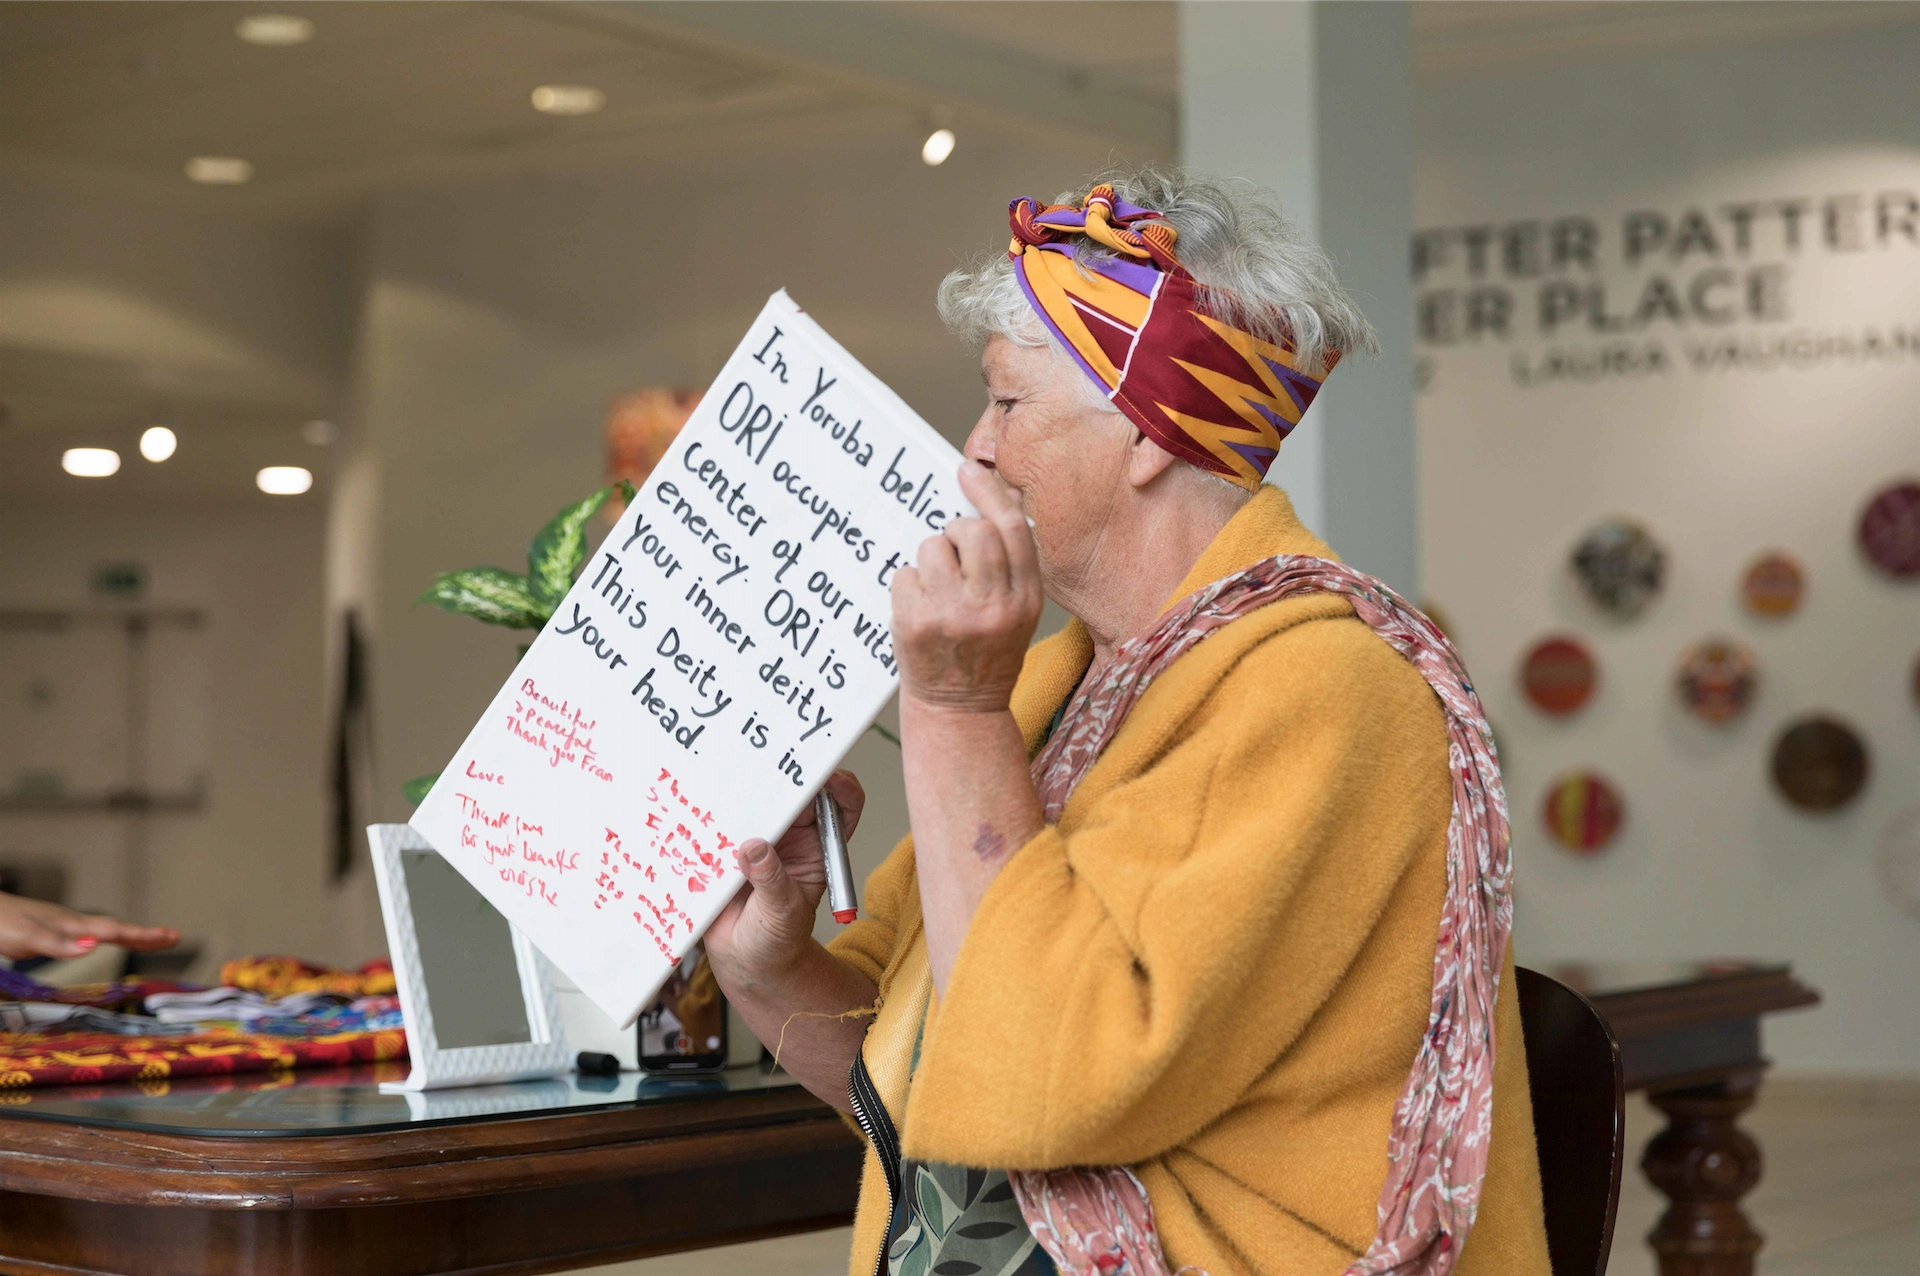 In Yoruba belie
ORI occupies t
center of our vital
energy. ORI is
your inner deity.
This Deity is in
your head.
Beautiful
& peaceful
Thank you Fran
Love
Thank
for your
Thank yo
So much
I love
it
Thank you
so much
Its amazing
FTER PATTER
ER PLACE
LAURA VAUGHAN